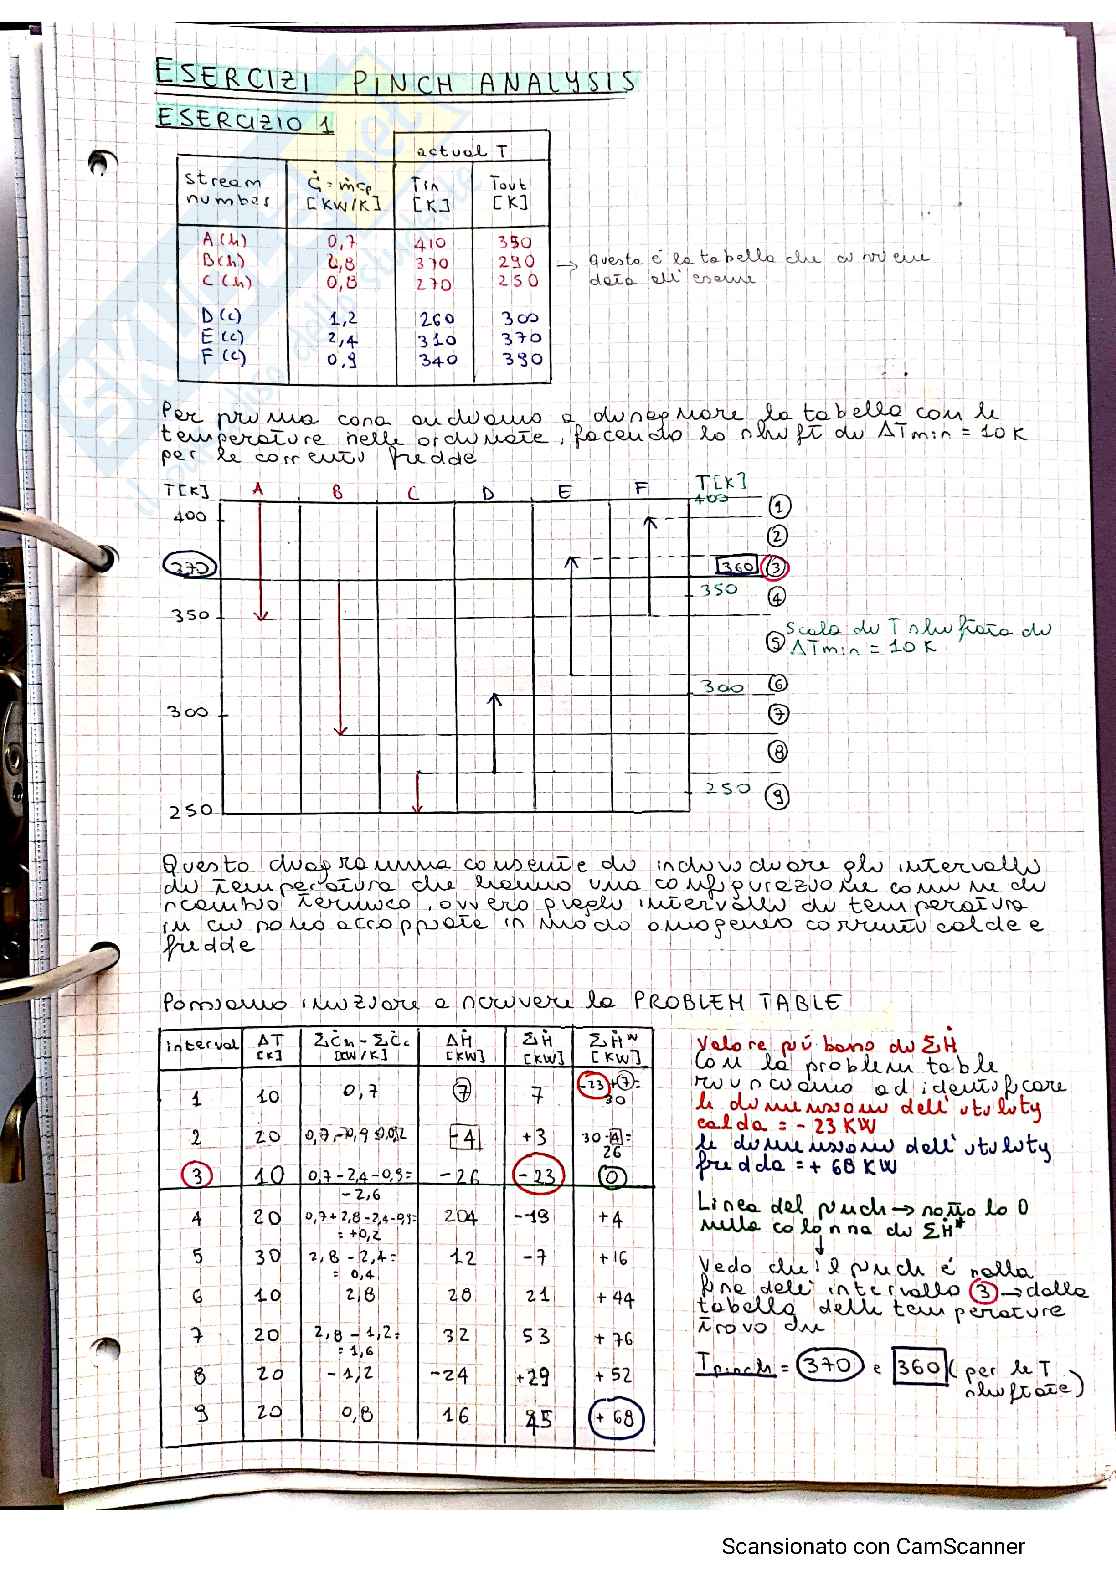 ESERCIZI PINCH ANALYSIS
ESERCIZIO 1
actual T
stream number
Ċ = ṁcp [KW/K]
Tin [K]
Tout [K]
A(h) 0,7 410 350
B(h) 2,8 370 290
C(h) 0,8 270 250
D(c) 1,2 260 300
E(c) 2,4 310 370
F(c) 0,9 340 390
→ Questa è la tabella che ci viene
data all'esame
Per prima cosa andiamo a disegnare la tabella con le
temperature nelle ordinate, facendo lo shift di ΔTmin = 10 K
per le correnti fredde
T[K] A B C D E F T[K]
400
400
370
350
300
250
360
350
300
250
1
2
3
4
5
6
7
8
9
Scala di T shiftata di
ΔTmin = 10 K
Questo diagramma consente di individuare gli intervalli
di temperatura che hanno una configurazione comune di
scambio termico, ovvero quegli intervalli di temperatura
in cui sono accoppiate in modo omogeneo correnti calde e
fredde
Possiamo iniziare a scrivere la PROBLEM TABLE
interval ΔT [K] ΣĊh - ΣĊc [KW/K] ΔḢ [KW] ΣḢ [KW] ΣḢ* [KW]
1 10 0,7 7 7 -23+7= 30
2 20 0,7-0,9=-0,2 -4 +3 30-4= 26
3 10 0,7-2,4-0,9= -2,6 -26 -23 0
4 20 0,7+2,8-2,4-0,9= = +0,2 204 -19 +4
5 30 2,8-2,4= = 0,4 12 -7 +16
6 10 2,8 28 21 +44
7 20 2,8-1,2= = 1,6 32 53 +76
8 20 -1,2 -24 +29 +52
9 20 0,8 16 45 +68
Valore più basso di ΣḢ
Con la problem table
riusciamo ad identificare
le dimensioni dell'utility
calda = -23 KW
le dimensioni dell'utility
fredda = + 68 KW
Linea del pinch → sotto lo 0
nella colonna di ΣḢ*
Vedo che il pinch è sulla
fine dell'intervallo 3 → dalla
tabella delle temperature
trovo che
Tpinch = 370 e 360 (per le T
shiftate)
Scansionato con CamScanner